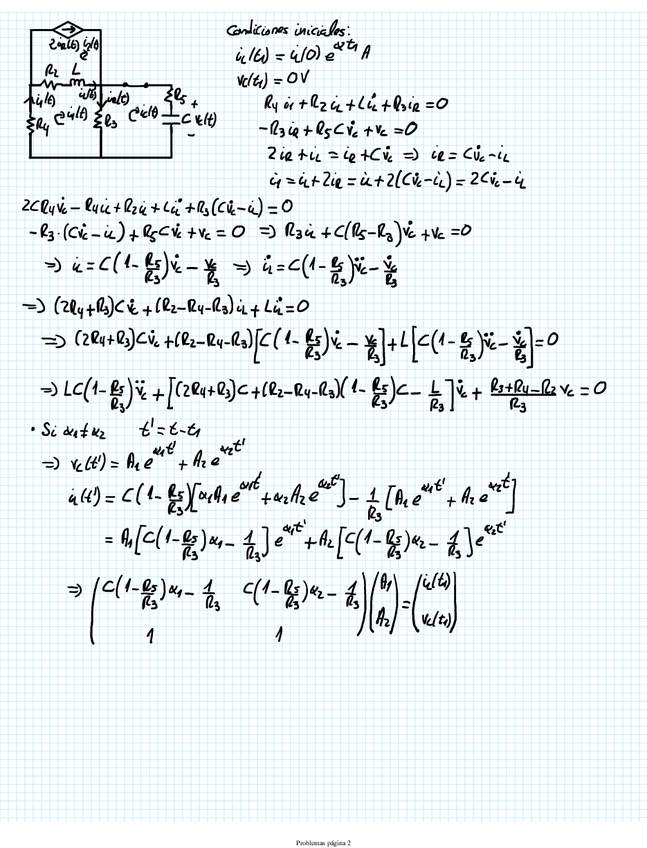 Condiciones iniciales:
2i_R(t) i_1(t)
i_L(t_1) = i_L(0) e^{α_2t_1} A
R_2 L
v_C(t_1) = 0V
i_L(t) i_R(t) R_5 +
i_1(t) i_1(t) i_C(t) C v_C(t)
R_4 R_3 -
R_4 i_1 + R_2 i_L + L i̇_L + R_3 i_R = 0
-R_3 i_R + R_5 C v̇_C + v_C = 0
2i_R + i_L = i_R + C v̇_C ⇒ i_R = C v̇_C - i_L
i_1 = i_L + 2i_R = i_L + 2(C v̇_C - i_L) = 2C v̇_C - i_L
2CR_4 v̇_C - R_4 i_L + R_2 i_L + L i̇_L + R_3(C v̇_C - i_L) = 0
-R_3·(C v̇_C - i_L) + R_5 C v̇_C + v_C = 0 ⇒ R_3 i_L + C(R_5 - R_3) v̇_C + v_C = 0
⇒ i_L = C(1 - R_5/R_3) v̇_C - v_C/R_3 ⇒ i̇_L = C(1 - R_5/R_3) v̈_C - v̇_C/R_3
⇒ (2R_4 + R_3) C v̇_C + (R_2 - R_4 - R_3) i_L + L i̇_L = 0
⇒ (2R_4 + R_3) C v̇_C + (R_2 - R_4 - R_3)[C(1 - R_5/R_3) v̇_C - v_C/R_3] + L[C(1 - R_5/R_3) v̈_C - v̇_C/R_3] = 0
⇒ LC(1 - R_5/R_3) v̈_C + [(2R_4 + R_3)C + (R_2 - R_4 - R_3)(1 - R_5/R_3)C - L/R_3] v̇_C + (R_3 + R_4 - R_2)/R_3 v_C = 0
• Si α_1 ≠ α_2 t' = t - t_1
⇒ v_C(t') = A_1 e^{α_1t'} + A_2 e^{α_2t'}
i_L(t') = C(1 - R_5/R_3)[α_1 A_1 e^{α_1t'} + α_2 A_2 e^{α_2t'}] - 1/R_3 [A_1 e^{α_1t'} + A_2 e^{α_2t'}]
= A_1[C(1 - R_5/R_3)α_1 - 1/R_3] e^{α_1t'} + A_2[C(1 - R_5/R_3)α_2 - 1/R_3] e^{α_2t'}
⇒ (C(1 - R_5/R_3)α_1 - 1/R_3 C(1 - R_5/R_3)α_2 - 1/R_3) (A_1) = (i_L(t_1))
1 1 A_2 v_C(t_1)
Problemas página 2